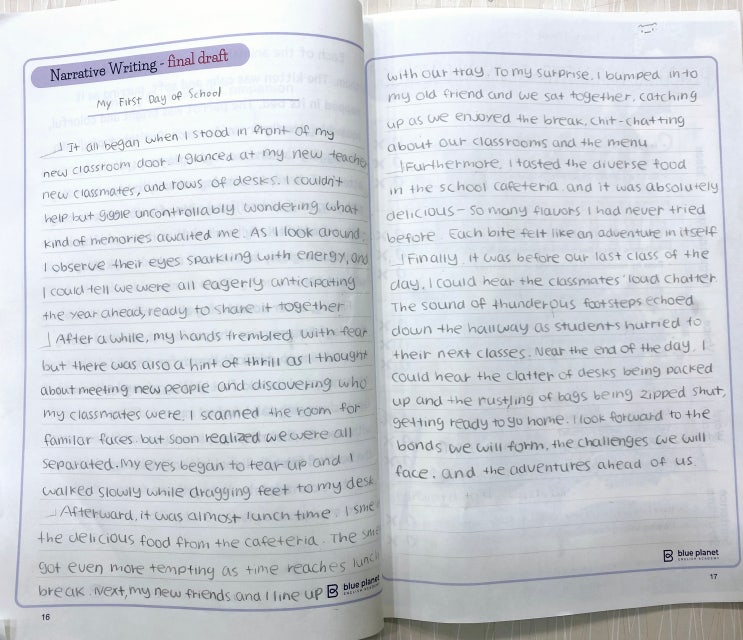 Narrative Writing - final draft
My First Day of School
It all began when I stood in front of my
new classroom door. I glanced at my new teacher
new classmates, and rows of desks. I couldn't
help but giggle uncontrollably wondering what
kind of memories awaited me. As I look around,
I observe their eyes sparkling with energy, and
I could tell we were all eagerly anticipating
the year ahead, ready to share it together
After a while, my hands trembled with fear
but there was also a hint of thrill as I thought
about meeting new people and discovering who
my classmates were. I scanned the room for
familar faces but soon realized we were all
separated. My eyes began to tear up and I
walked slowly while dragging feet to my desk
Afterward, it was almost lunch time. I
the delicious food from the cafeteria. The
got even more tempting as time reaches lunch
break. Next, my new friends and I line up
blue planet
ENGLISH ACADEMY
16
with our tray. To my surprise, I bumped into
my old friend and we sat together, catching
up as we enjoyed the break, chit-chatting
about our classrooms and the menu
Furthermore, I tasted the diverse food
in the school cafeteria and it was absolutely
delicious - so many flavors I had never tried
before. Each bite felt like an adventure in itself
Finally, it was before our last class of the
day. I could hear the classmates' loud chatter.
The sound of thunderous footsteps echoed
down the hallway as students hurried to
their next classes. Near the end of the day, I
could hear the clatter of desks being packed
up and the rustling of bags being zipped shut,
getting ready to go home. I look forward to the
bonds we will form, the challenges we will
face, and the adventures ahead of us
blue planet
ENGLISH ACADEMY
17